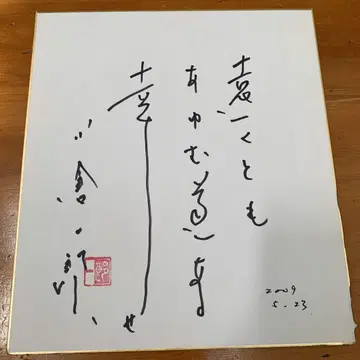 遠くとも
あゆむ道ある
幸せ
小倉一郎
2009
5.23